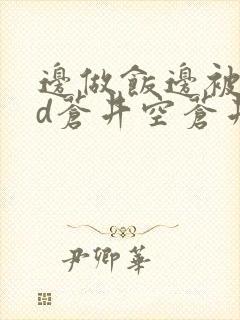 邊做飯邊被
d蒼井空蒼井
尹卿華